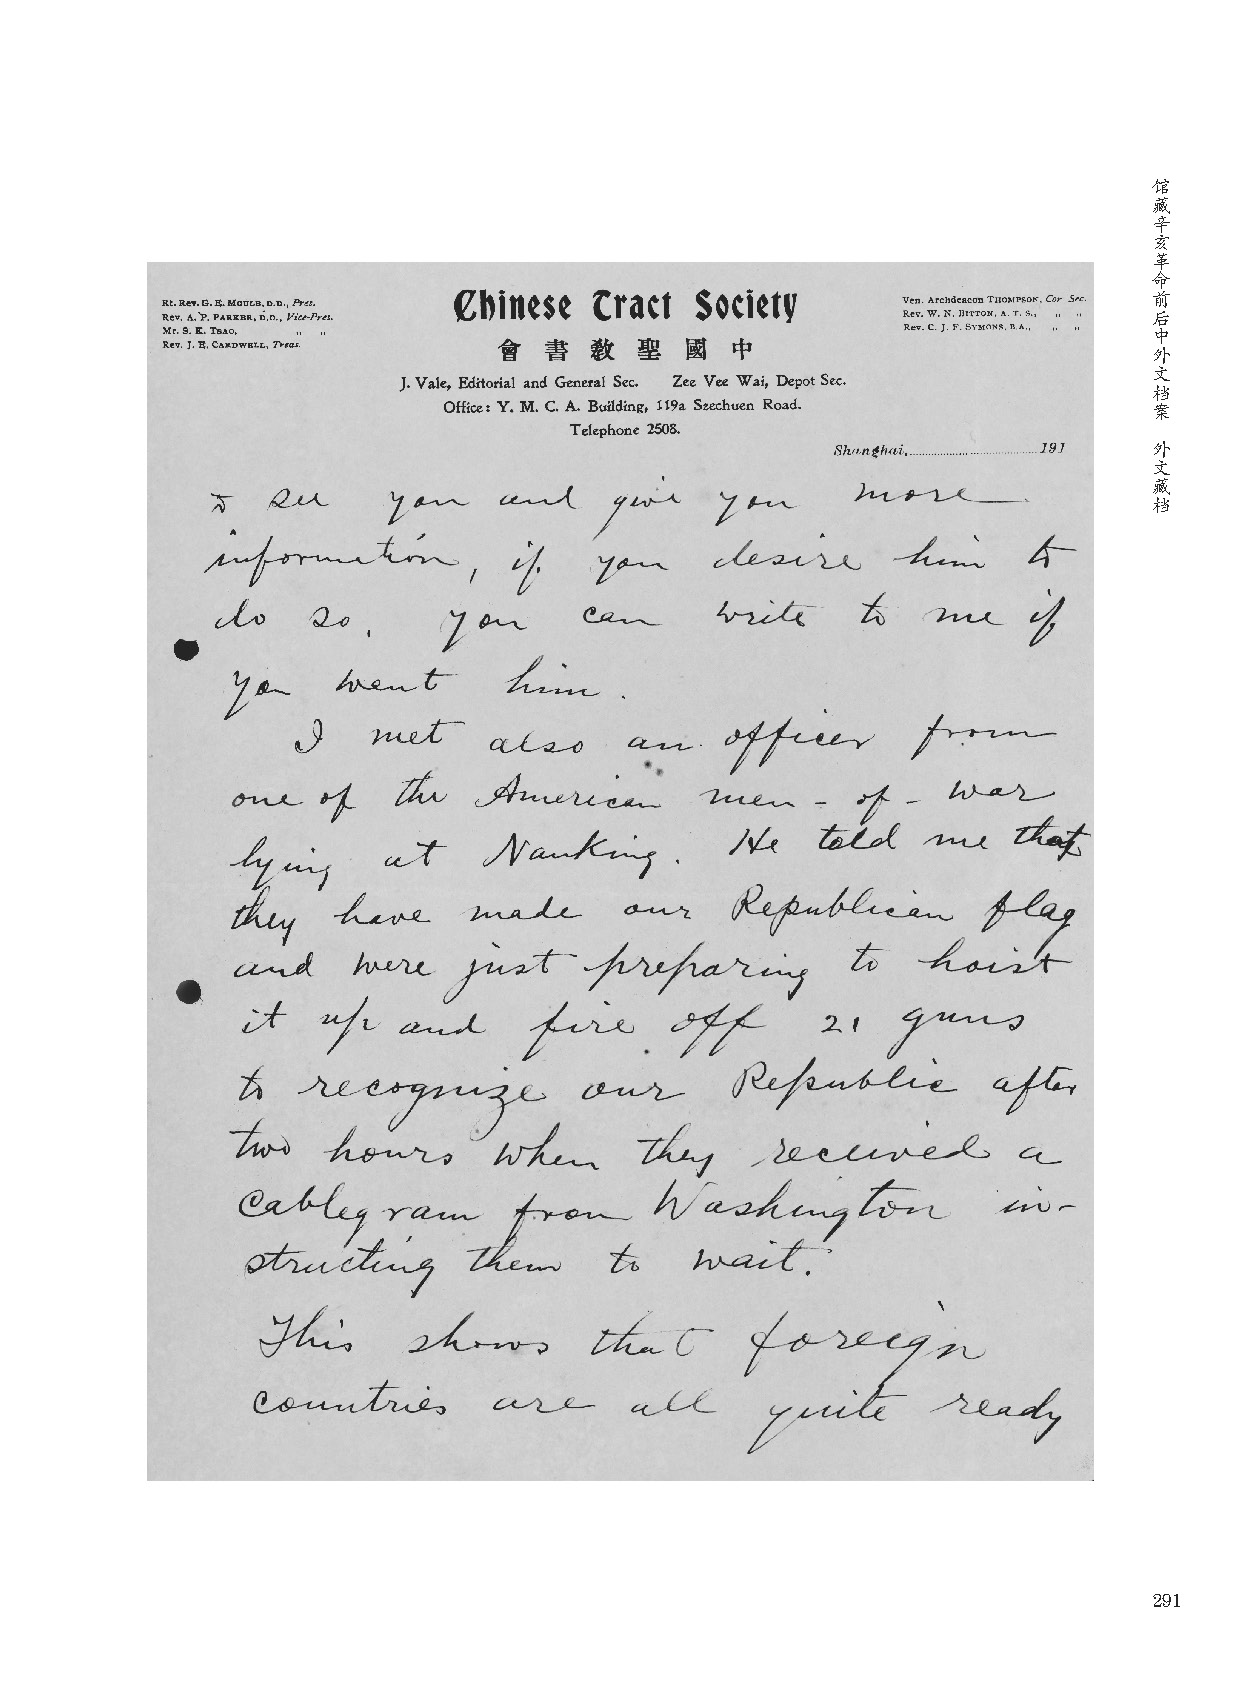 馆藏辛亥革命前后中外文档案 外文藏档
Rt. Rev. G. E. MOULE, D.D., Pres.
Rev. A. P. PARKER, D.D., Vice-Pres.
Mr. S. K. TSAO, " "
Rev. J. E. CARDWELL, Treas.
Chinese Tract Society
會書教聖國中
J. Vale, Editorial and General Sec. Zee Vee Wai, Depot Sec.
Office: Y. M. C. A. Building, 119a Szechuen Road.
Telephone 2508.
Ven. Archdeacon THOMPSON, Cor Sec.
Rev. W. N. BITTON, A. T. S., " "
Rev. C. J. F. SYMONS, B.A., " "
Shanghai, 191
to see you and give you more
information, if you desire him to
do so, you can write to me if
you want him.
I met also an officer from
one of the American men-of-war
lying at Nanking. He told me that
they have made our Republican flag
and were just preparing to hoist
it up and fire off 21 guns
to recognize our Republic after
two hours when they received a
cablegram from Washington in-
structing them to wait.
This shows that foreign
countries are all quite ready
291